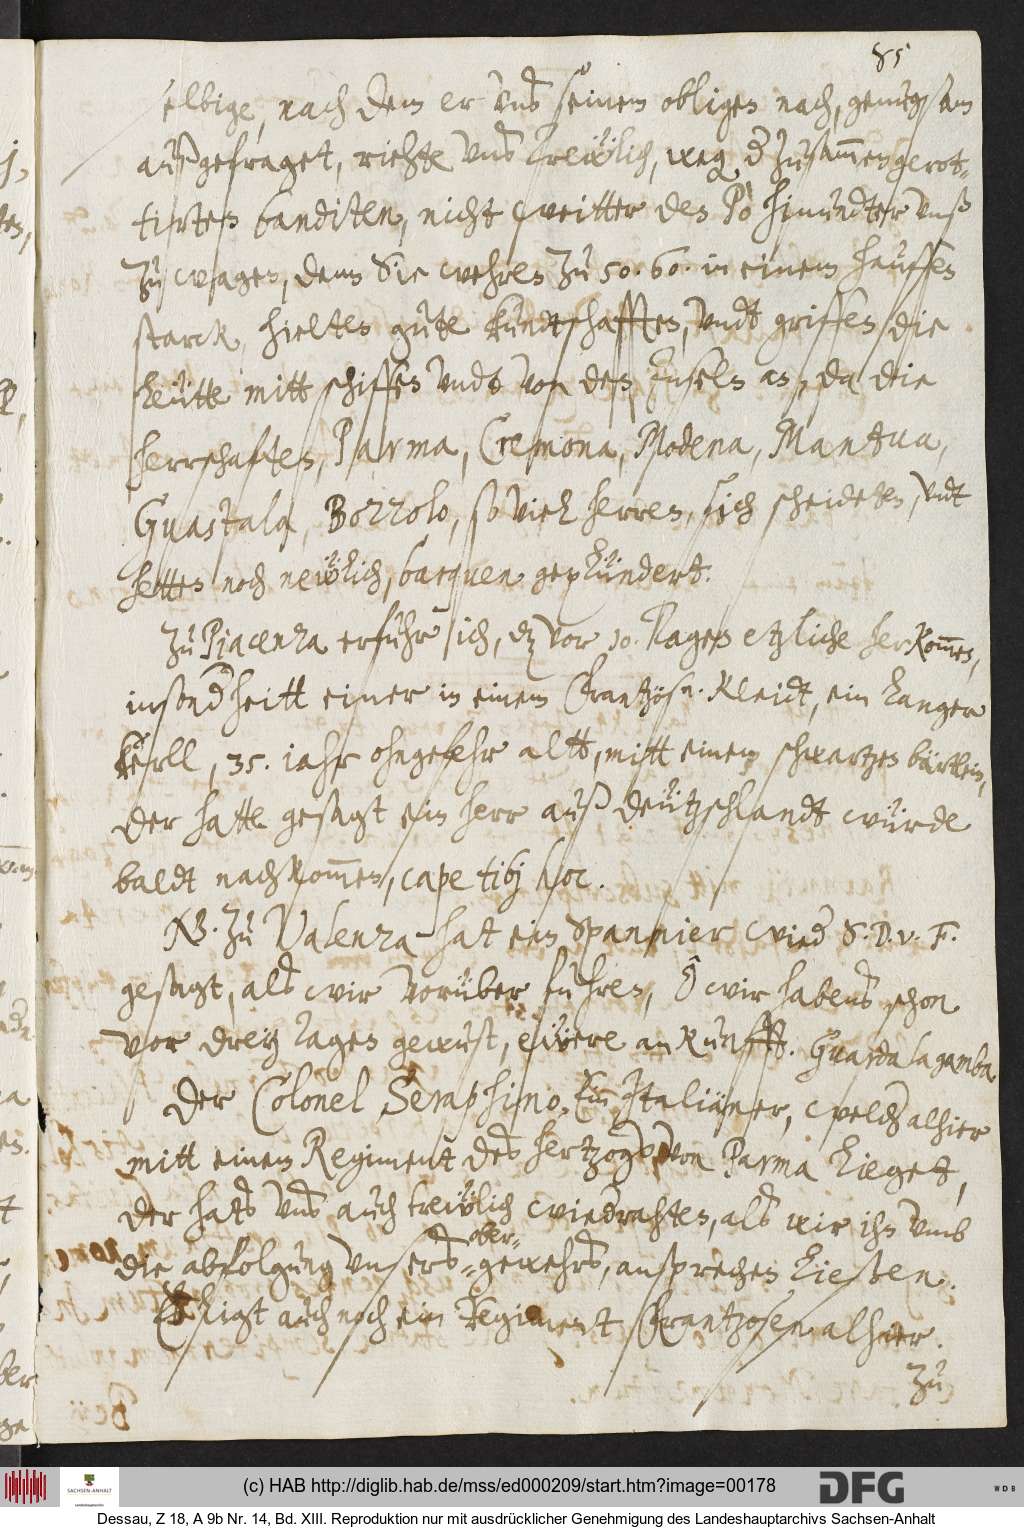 85
selbige, nach dem er vns seinem obligen nach, genugsam
außgefraget, riehte vns treẅlich, weg. d zusam̄engerot-
tirten banditen, nicht weitter den Pò hinundter vnß
zu wagen, denn Sie wehren zu 50. 60. in einem hauffen
starck, hielten gute kundtschafften, vndt griffen die
leütte mitt schiffen vndt von den Inseln an, da die
herrschaften, Parma, Cremona, Modena, Mantua,
Guastala, Bozzolo, so viel herren, sich scheideten, vndt
hetten noch neẅlich, barquen geplündert.
Zu Piacenza erfuhr ich, dz vor 10. Tagen etzliche herkom̄en,
insond'heitt einer in einem Frantzösn. Kleidt, ein langer
kerll, 35. iahr ohngefehr altt, mitt einem schwartzen bärtlein,
der hatte gesagt ein herr auß deützschlandt würde
baldt nachkom̄en, cape tibj hoc.
NB. Zu Valenza hat ein Spannier wied' S. D. v. F.
gesagt, als wir vorüber fuhren, ô wir habens schon
vor dreyen tagen gewust, eẅere ankunfft. Guarda la gamba
Der Colonel Seraphino, Ein Italiäner, welch' alhier
mitt einem Regiment des hertzogs von Parma lieget,
der hats vns auch treẅlich wiedrahten, als wir ihn vmb
die abfolgung vnsers ober-
gewehrs, ansprechen ließen.
Es ligt auch noch ein Regiment Frantzosen alhier.
Zu
(c) HAB http://diglib.hab.de/mss/ed000209/start.htm?image=00178
SACHSEN-ANHALT
DFG
WDB
Dessau, Z 18, A 9b Nr. 14, Bd. XIII. Reproduktion nur mit ausdrücklicher Genehmigung des Landeshauptarchivs Sachsen-Anhalt